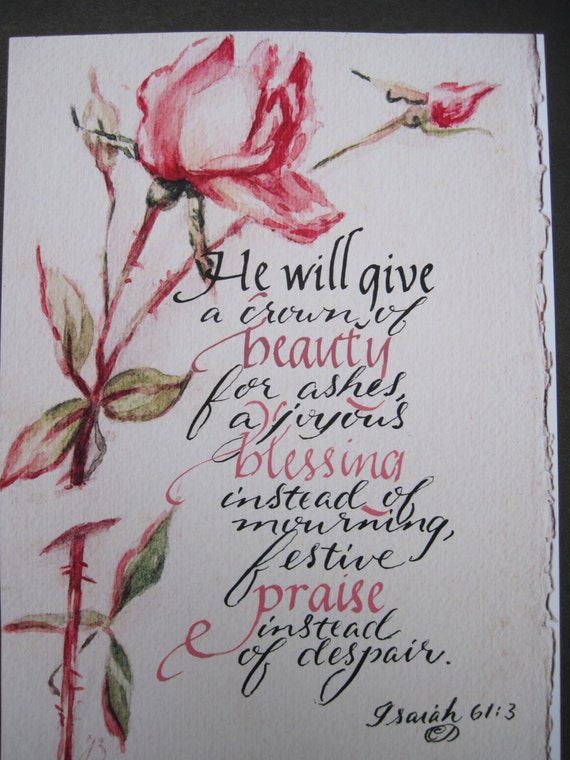 He will give
a crown of
beauty
for ashes,
a joyous
blessing
instead of
mourning,
festive
praise
instead
of despair.
Isaiah 61:3